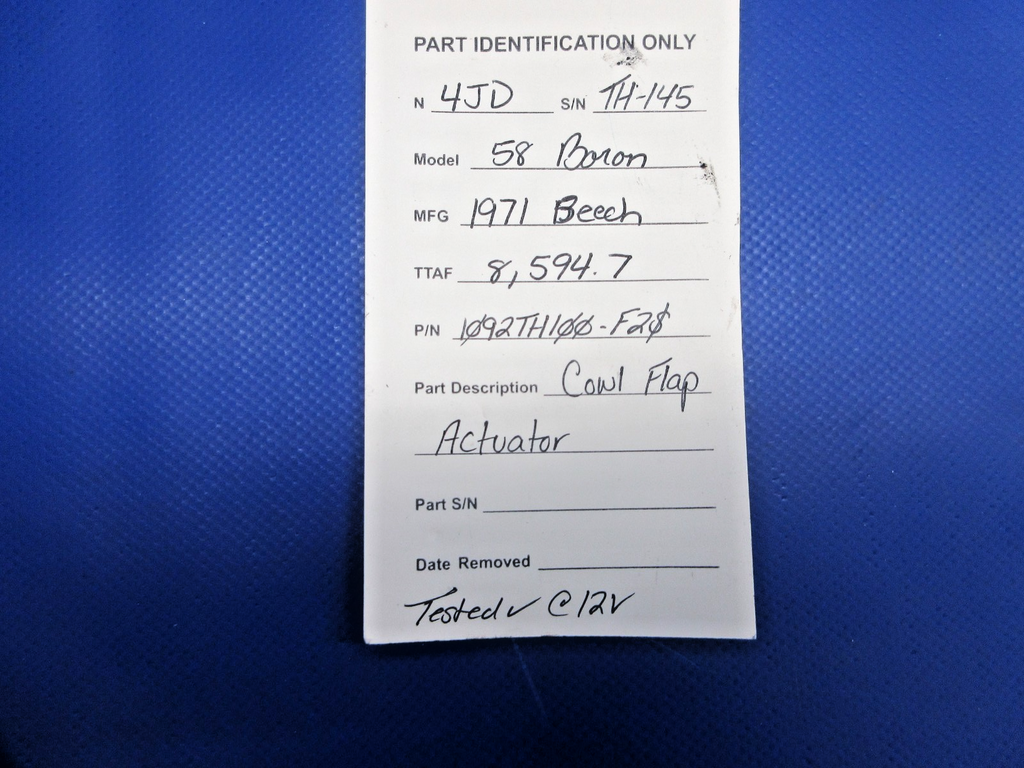 PART IDENTIFICATION ONLY
N 4JD S/N TH-145
Model 58 Baron
MFG 1971 Beech
TTAF 8,594.7
P/N 1092TH100-F20
Part Description Cowl Flap
Actuator
Part S/N
Date Removed
Tested ✓ @ 12V